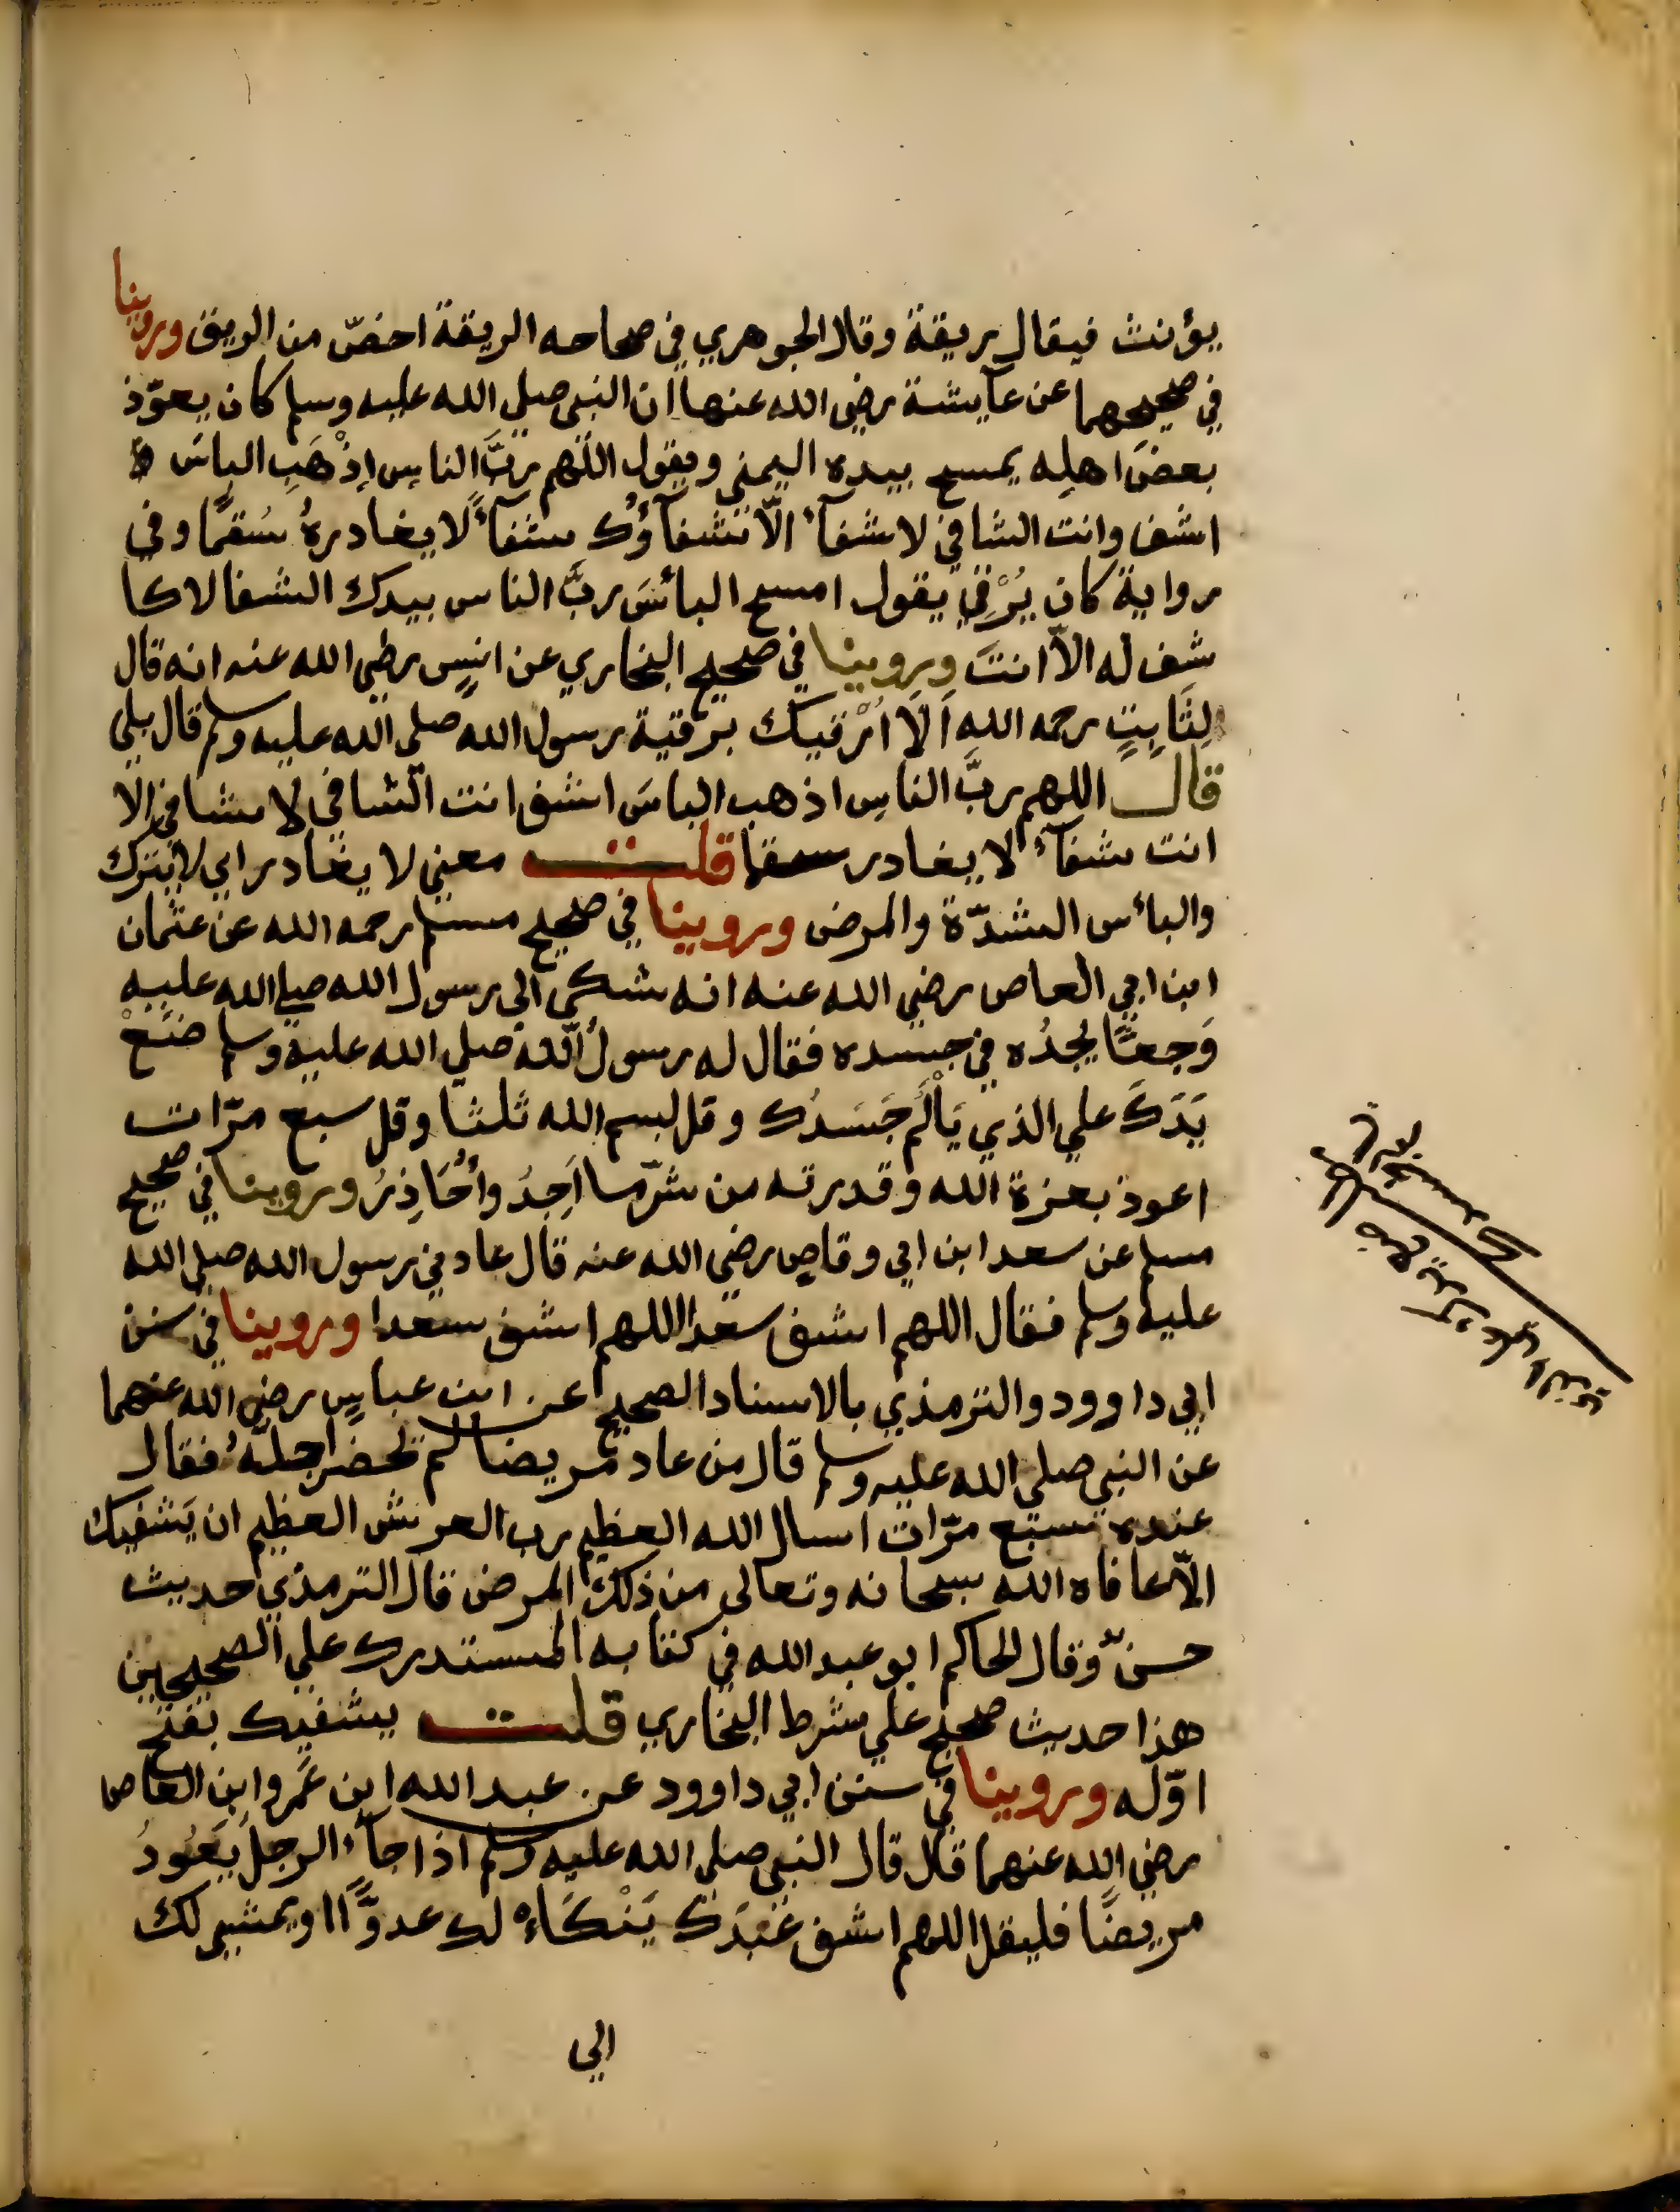 يؤنث فيقال ريقة وقال الجوهري في صحاحه الريقة اخصّ من الريق وروينا
في صحيحهما عن عآيشة رضي الله عنها ان النبي صلي الله عليه وسلم كان يعوّذ
بعضَ اهلِه يمسح بيده اليمني ويقول اللّهم ربَّ الناسِ اِذْهَبِ الباسَ
اشف وانت الشافي لا شفآءَ الّا شفآؤُك شفآءً لا يغادرهُ سُقمًا وفي
رواية كان يُرْقِي يقول امسح البأسَ ربَّ الناس بيدك الشفا لا كا
شف له الّا انتَ وروينا في صحيح البخاري عن انسٍ رضي الله عنه انه قال
لِثَابِتٍ رحمه الله اَلَا اُرْقيك برقية رسول الله صلي الله عليه وسلم قال بلي
قال اللهم ربَّ الناسِ اذهب الباسَ اشف انت الشافي لا شافي الا
انت شفآءً لا يغادر سقما قلت معني لا يغادر اي لا يترك
والبأس الشدّة والمرض وروينا في صحيح مسلم رحمه الله عن عثمان
ابن ابي العاص رضي الله عنه انه شكي الي رسول الله صلي الله عليه
وَجعًا يجدُه في جسده فقال له رسولُ الله صلي الله عليه وسلم ضَعْ
يَدَكَ علي الذي يَأْلَم جَسَدُك وقل بسم الله ثلثا وقل سبع مرّات
اعوذ بعزة الله وقدرته من شرّ ما اَجِدُ واُحَاذِرُ وروينا في صحيح
مسلم عن سعد ابن ابي وقاصٍ رضي الله عنه قال عادني رسول الله صلي الله
عليه وسلم فقال اللهم اشف سعدا اللهم اشف سعدا وروينا في سنن
ابي داوود والترمذي بالاسناد الصحيح عن ابن عباسٍ رضي الله عنهما
عن النبي صلي الله عليه وسلم قال من عاد مريضا لم تحضر اجلهُ فقال
عنده سبع مرّات اسال الله العظيم رب العرش العظيم ان يَشفيك
الّا عافاه الله سبحانه وتعالي من ذلك المرض قال الترمذي حديث
حسنٌ وقال الحاكم ابو عبد الله في كتابه المستدرك علي الصحيحين
هذا حديث صحيح علي شرط البخاري قلت يشفيك بفتح
اوّله وروينا في سنن ابي داوود عن عبد الله ابن عَمرو ابن العاص
رضي الله عنهما قال قال النبي صلي الله عليه وسلم اذا جآء الرجل يَعُودُ
مريضًا فليقل اللهم اشف عَبْدَكَ يَنْكَاءُ لك عدوًّا او يمشي لك
الي